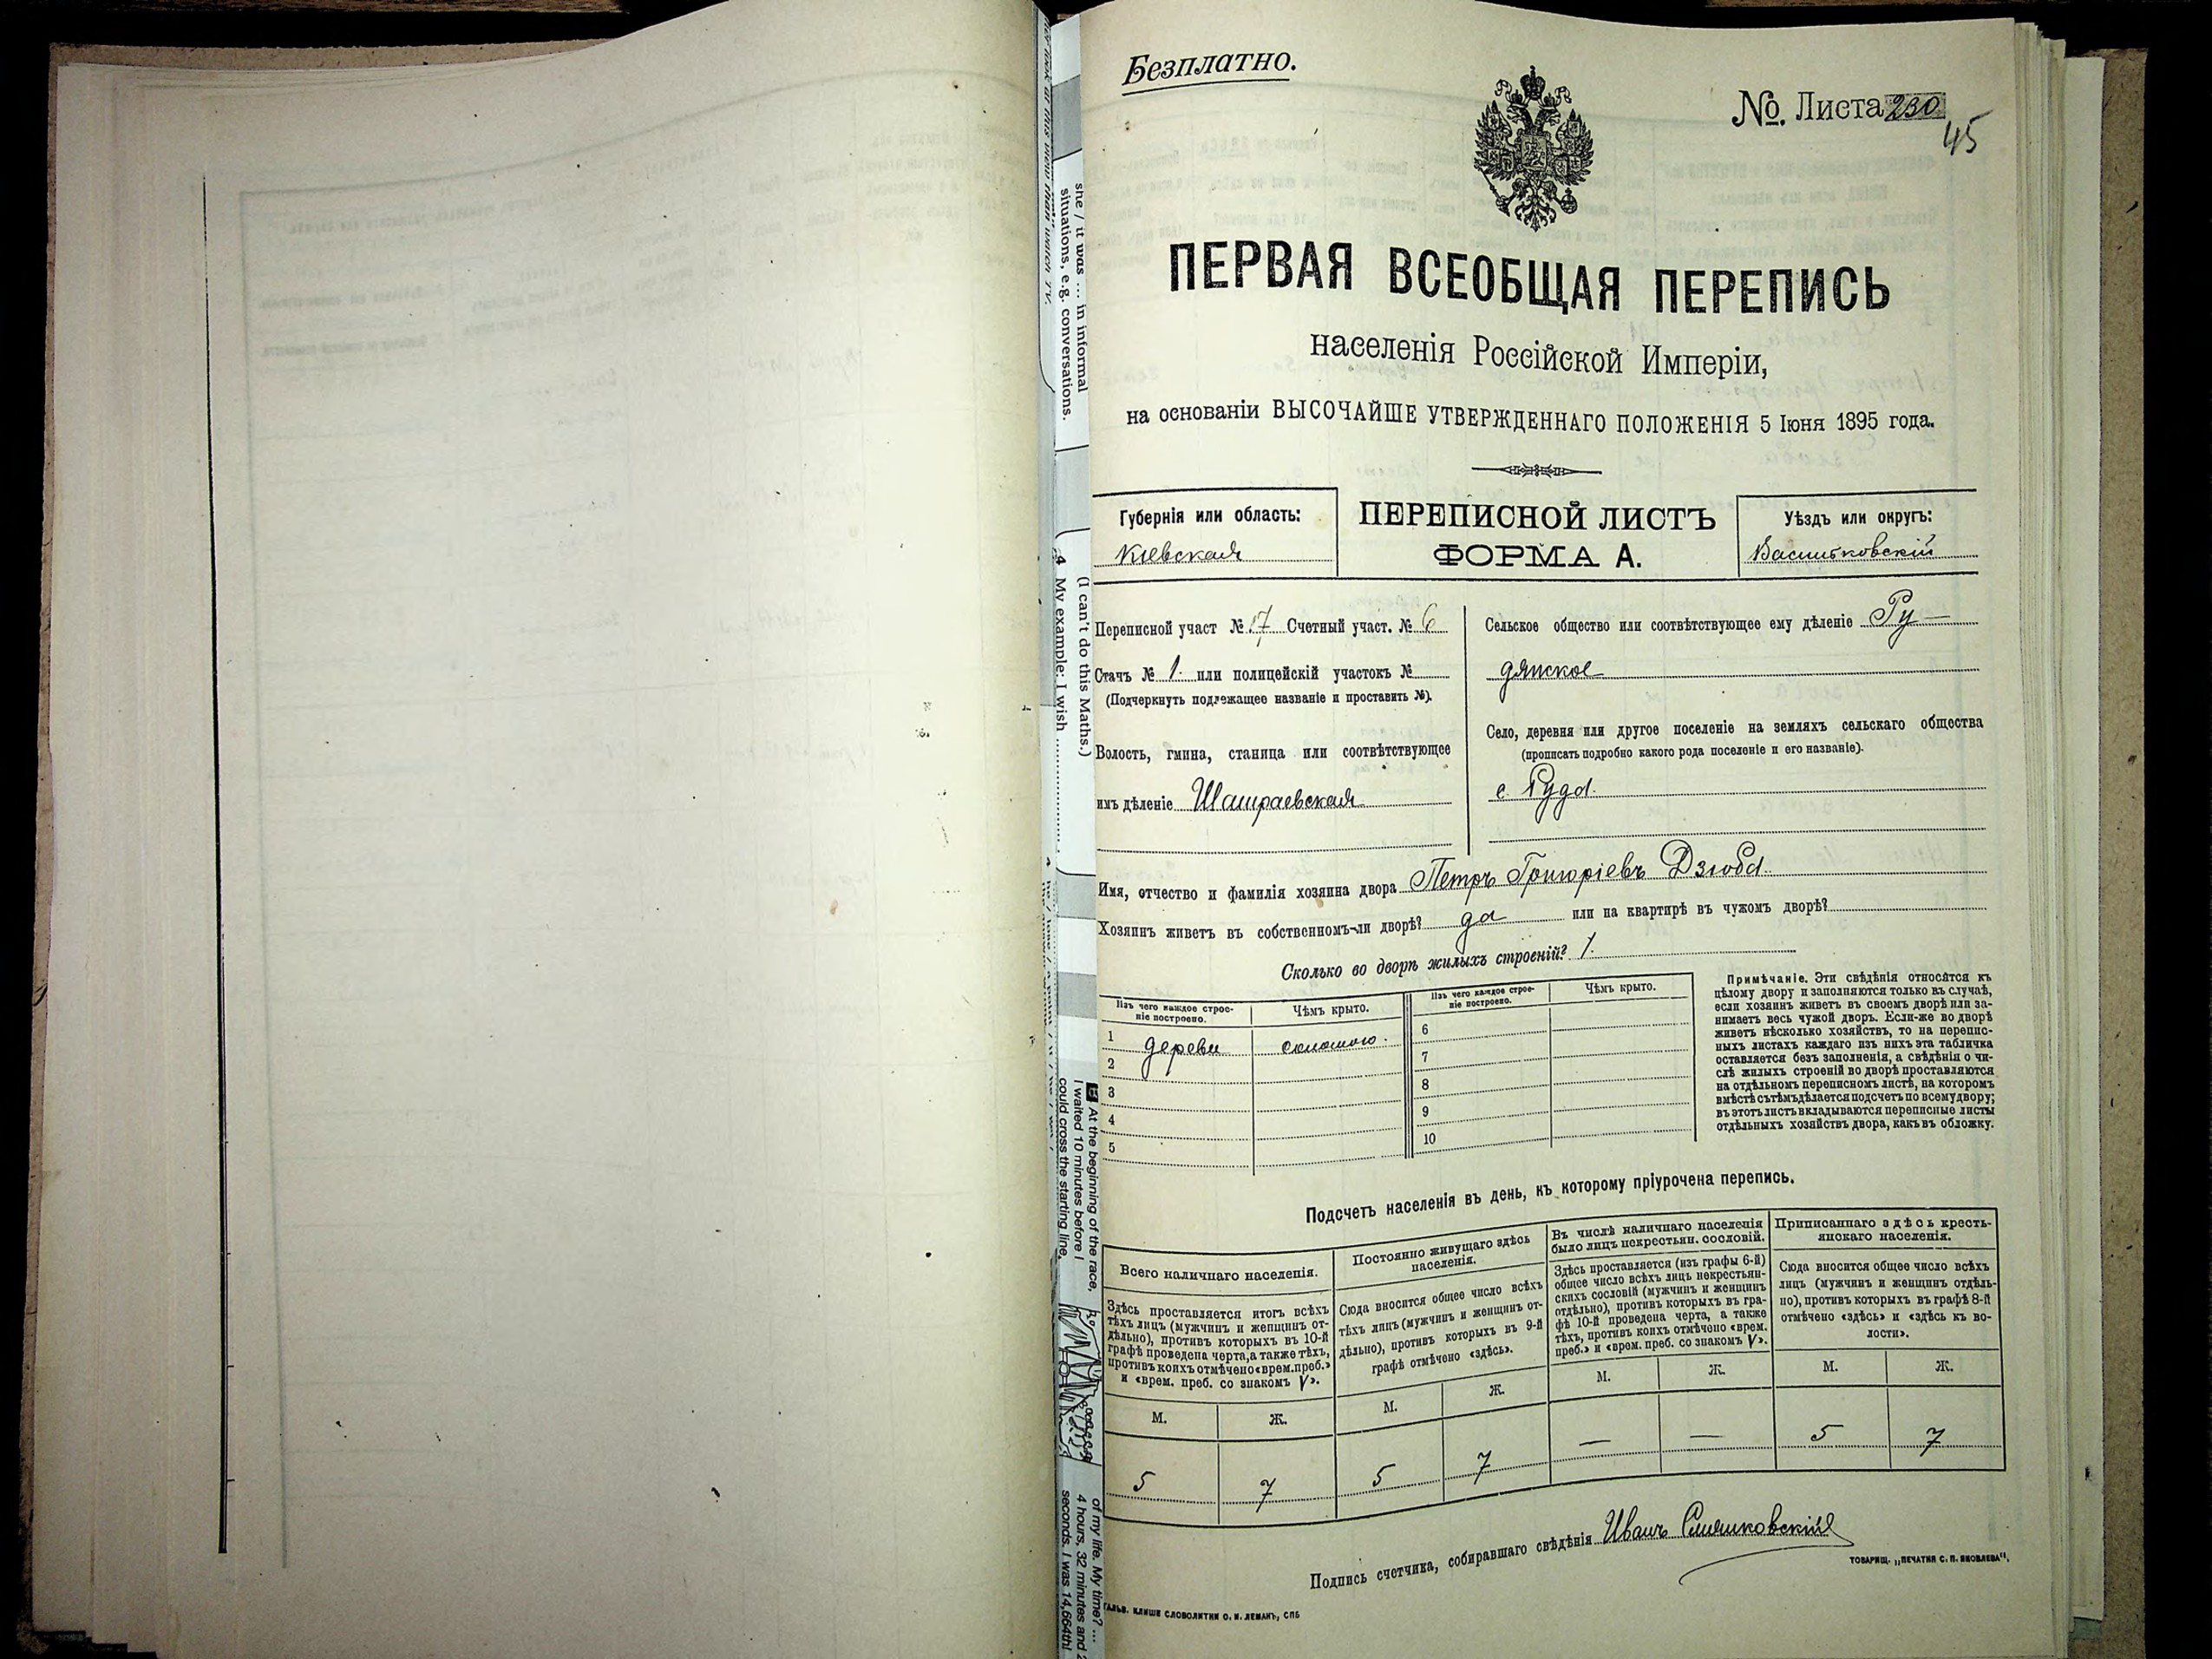 Безплатно.
№ Листа 230
45
ПЕРВАЯ ВСЕОБЩАЯ ПЕРЕПИСЬ
населенія Россійской Имперіи,
на основаніи ВЫСОЧАЙШЕ УТВЕРЖДЕННАГО ПОЛОЖЕНІЯ 5 Іюня 1895 года.
Губернія или область:
Кіевская
ПЕРЕПИСНОЙ ЛИСТЪ
ФОРМА А.
Уѣздъ или округъ:
Васильковскій
Переписной участ № 17 Счетный участ. № 6
Станъ № 1. или полицейскій участокъ №
(Подчеркнуть подлежащее названіе и проставить №).
Волость, гмина, станица или соотвѣтствующее
имъ дѣленіе Шамраевская
Сельское общество или соотвѣтствующее ему дѣленіе Ру-
дянское
Село, деревня или другое поселеніе на земляхъ сельскаго общества
(прописать подробно какого рода поселеніе и его названіе).
с. Руда.
Имя, отчество и фамилія хозяина двора Петръ Григоріевъ Дзюба.
Хозяинъ живетъ въ собственномъ-ли дворѣ? да или на квартирѣ въ чужомъ дворѣ?
Сколько во дворѣ жилыхъ строеній? 1.
Изъ чего каждое строе-
ніе построено.
Чѣмъ крыто.
Изъ чего каждое строе-
ніе построено.
Чѣмъ крыто.
1 дерева соломою. 6
2 7
3 8
4 9
5 10
Примѣчаніе. Эти свѣдѣнія относятся къ
цѣлому двору и заполняются только въ случаѣ,
если хозяинъ живетъ въ своемъ дворѣ или за-
нимаетъ весь чужой дворъ. Если-же во дворѣ
живетъ нѣсколько хозяйствъ, то на перепис-
ныхъ листахъ каждаго изъ нихъ эта табличка
оставляется безъ заполненія, а свѣдѣнія о чи-
слѣ жилыхъ строеній во дворѣ проставляются
на отдѣльномъ переписномъ листѣ, на которомъ
вмѣстѣ съ тѣмъ дѣлается подсчетъ по всему двору;
въ этотъ листъ вкладываются переписные листы
отдѣльныхъ хозяйствъ двора, какъ въ обложку.
Подсчетъ населенія въ день, къ которому пріурочена перепись.
Всего наличнаго населенія.
Здѣсь проставляется итогъ всѣхъ
тѣхъ лицъ (мужчинъ и женщинъ от-
дѣльно), противъ которыхъ въ 10-й
графѣ проведена черта, а также тѣхъ,
противъ коихъ отмѣчено «врем. преб.»
и «врем. преб. со знакомъ V».
М. Ж.
5 7
Постоянно живущаго здѣсь
населенія.
Сюда вносится общее число всѣхъ
тѣхъ лицъ (мужчинъ и женщинъ от-
дѣльно), противъ которыхъ въ 9-й
графѣ отмѣчено «здѣсь».
М. Ж.
5 7
Въ числѣ наличнаго населенія
было лицъ некрестьян. сословій.
Здѣсь проставляется (изъ графы 6-й)
общее число всѣхъ лицъ некрестьян-
скихъ сословій (мужчинъ и женщинъ
отдѣльно), противъ которыхъ въ гра-
фѣ 10-й проведена черта, а также
тѣхъ, противъ коихъ отмѣчено «врем.
преб.» и «врем. преб. со знакомъ V».
М. Ж.
— —
Приписаннаго здѣсь кресть-
янскаго населенія.
Сюда вносится общее число всѣхъ
лицъ (мужчинъ и женщинъ отдѣль-
но), противъ которыхъ въ графѣ 8-й
отмѣчено «здѣсь» и «здѣсь къ во-
лости».
М. Ж.
5 7
Подпись счетчика, собиравшаго свѣдѣнія Иванъ
ГАЛЬВ. КЛИШЕ СЛОВОЛИТНИ О. И. ЛЕМАНЪ, СПБ
ТОВАРИЩ. „ПЕЧАТНЯ С. П. ЯКОВЛЕВА“.
she / it was ... in informal
situations, e.g. conversations.
(I can't do this Maths.)
4 My example: I wish
At the beginning of the race,
I waited 10 minutes before I
could cross the starting line.
of my life. My time? ...
4 hours, 32 minutes and 2
seconds. I was 14,664th!